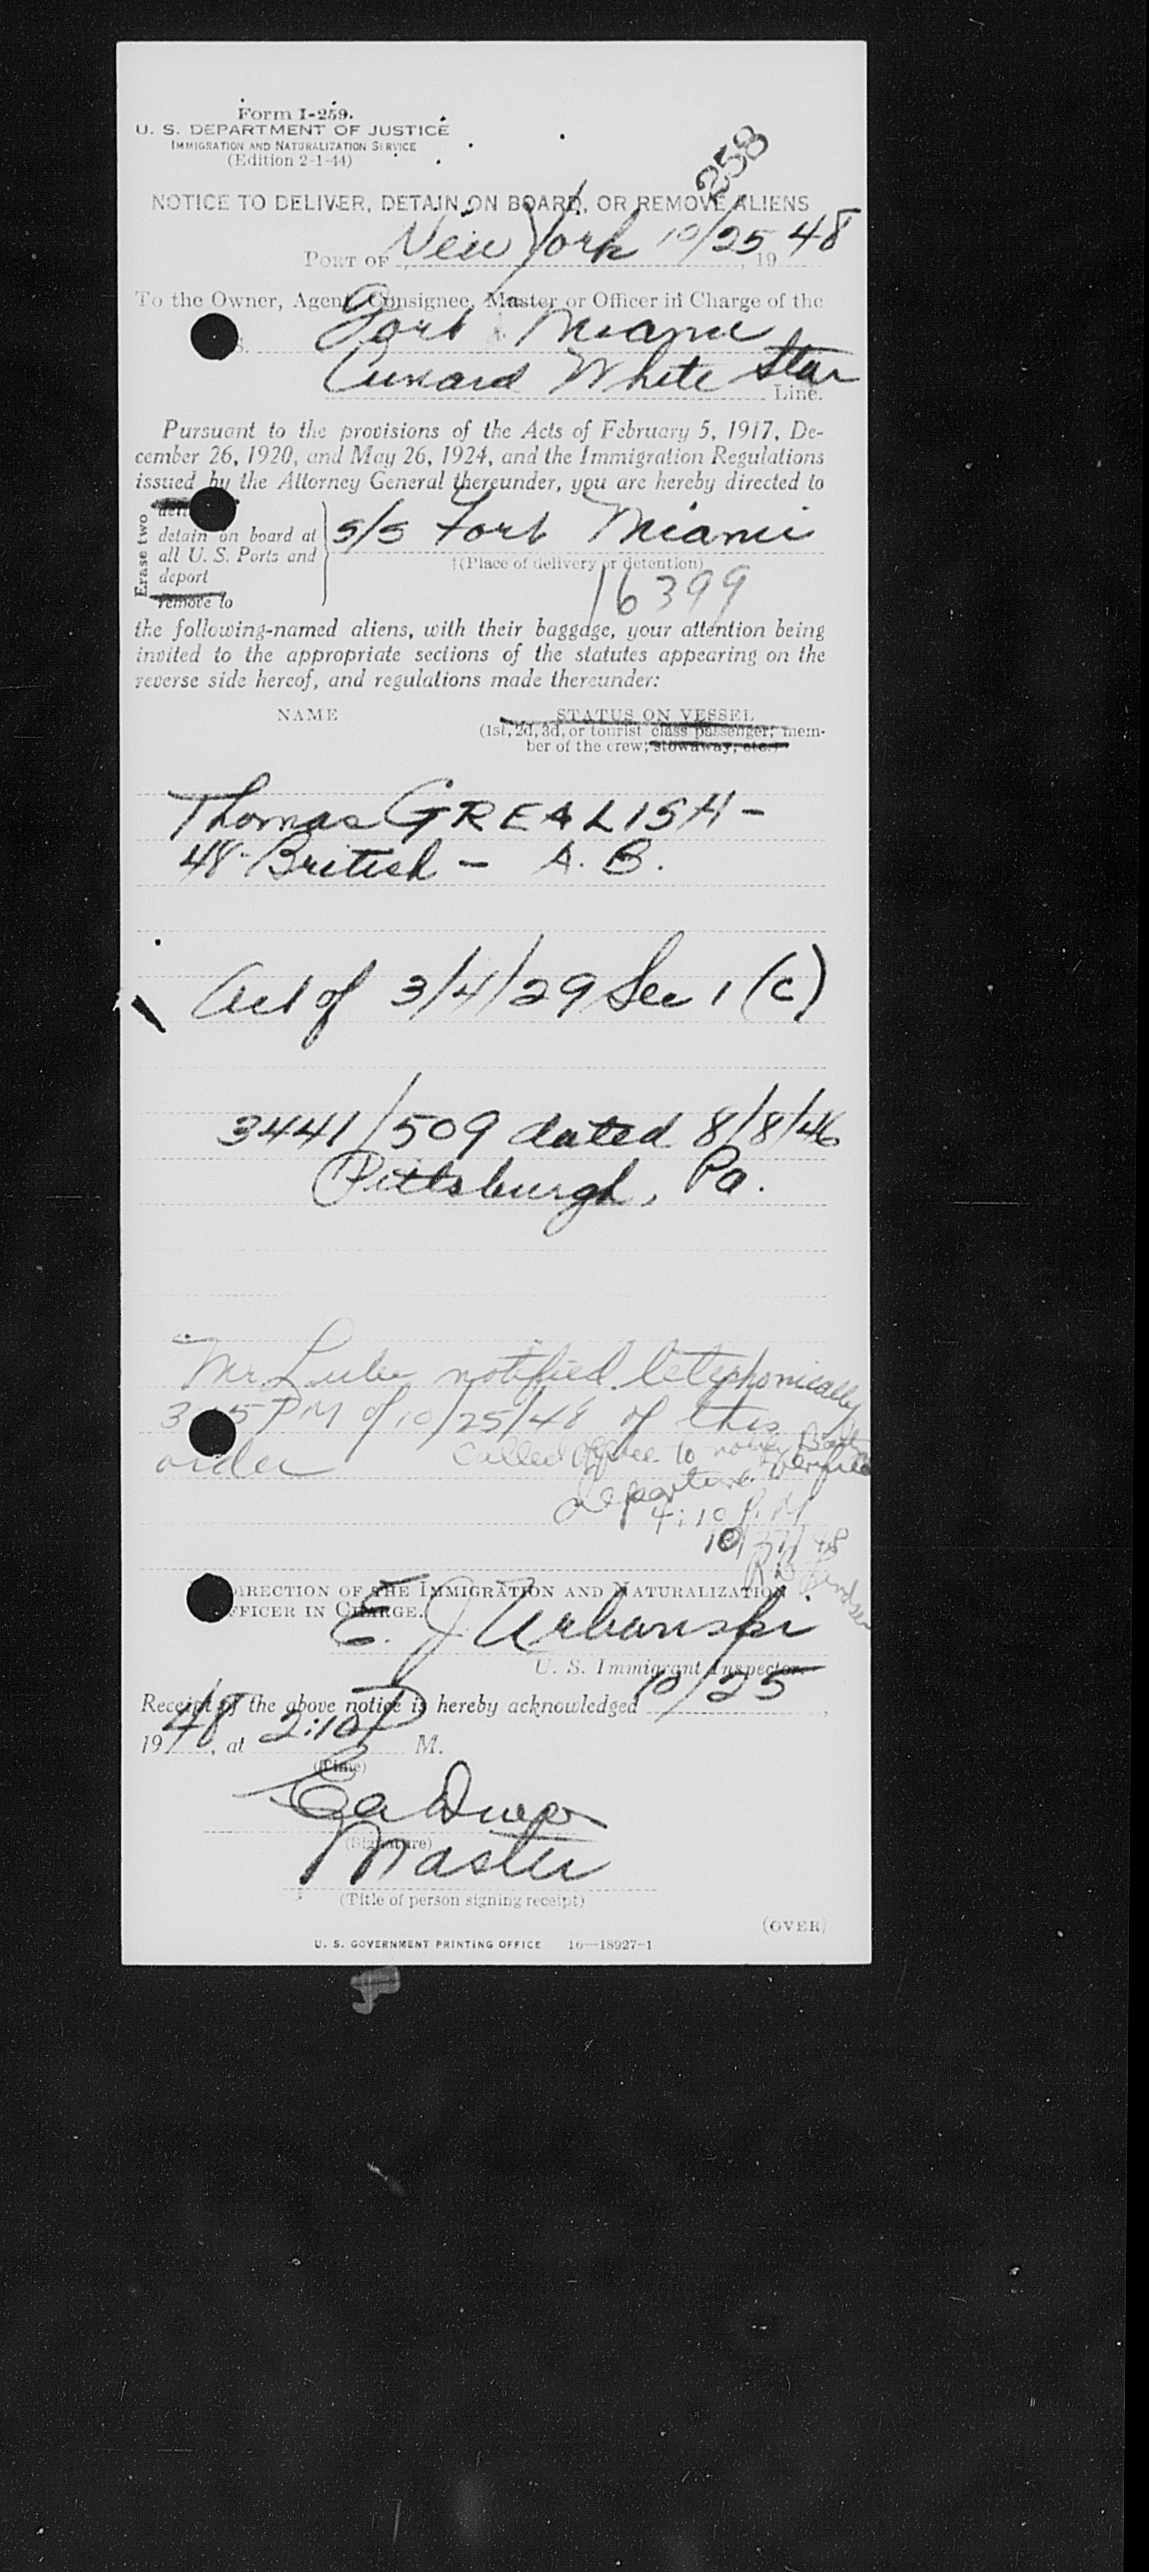 Form I-259.
U. S. DEPARTMENT OF JUSTICE
IMMIGRATION AND NATURALIZATION SERVICE
(Edition 2-1-44)
258
NOTICE TO DELIVER, DETAIN ON BOARD, OR REMOVE ALIENS
PORT OF New York 10/25, 1948
To the Owner, Agent, Consignee, Master or Officer in Charge of the
S. Fort Miami
Cunard White Star Line.
Pursuant to the provisions of the Acts of February 5, 1917, De-
cember 26, 1920, and May 26, 1924, and the Immigration Regulations
issued by the Attorney General thereunder, you are hereby directed to
Erase two
detain on board at
all U. S. Ports and
deport
remove to
S/S Fort Miami
†(Place of delivery or detention)
16399
the following-named aliens, with their baggage, your attention being
invited to the appropriate sections of the statutes appearing on the
reverse side hereof, and regulations made thereunder:
NAME STATUS ON VESSEL
(1st, 2d, 3d, or tourist class passenger; mem-
ber of the crew; stowaway, etc.)
Thomas GREALISH -
48-British - A. B.
Act of 3/4/29 Sec 1 (c)
3441/509 dated 8/8/46
Pittsburgh, Pa.
Mr. notified telephonically
PM of 10/25/48 of this
order
Called office to
Departure verified
4:10 P.M
10
DIRECTION OF THE IMMIGRATION AND NATURALIZATION
OFFICER IN CHARGE.
E. J. Urbanski
U. S. Immigrant Inspector.
Receipt of the above notice is hereby acknowledged 10/25,
1948, at 2:10 P M.
(Time)
(Signature)
Master
(Title of person signing receipt)
(OVER)
U. S. GOVERNMENT PRINTING OFFICE 16—18927-1